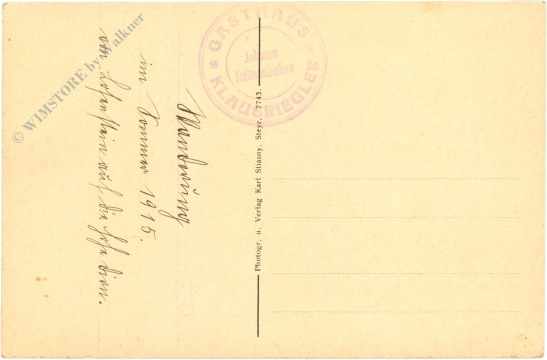 Wanderung
im Sommer 1915.
von Losenstein auf die hohe Dirn.
GASTHAUS
Johann
KLAUSRIEGLER
Photogr. u. Verlag Karl Stiasny, Steyr. 7743.
© WIMSTORE by Falkner